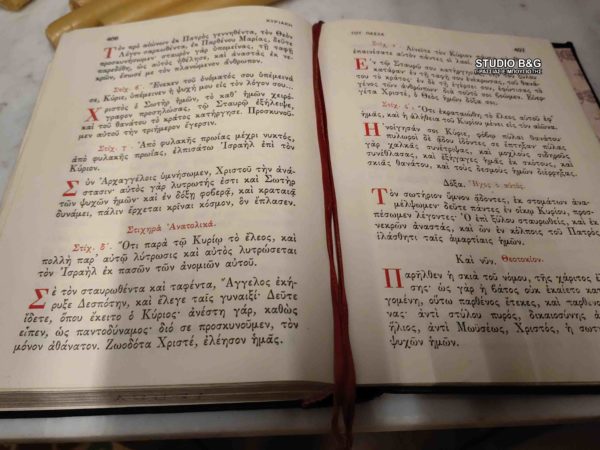 406
ΚΥΡΙΑΚΗ
Τὸν πρὸ αἰώνων ἐκ Πατρὸς γεννηθέντα, τὸν Θεὸν
Λόγον σαρκωθέντα, ἐκ Παρθένου Μαρίας, δεῦτε
προσκυνήσωμεν· Σταυρὸν γὰρ ὑπομείνας, τῇ ταφῇ
παρεδόθη, ὡς αὐτὸς ἠθέλησε, καὶ ἀναστὰς ἐκ νε-
κρῶν, ἔσωσέ με τὸν πλανώμενον ἄνθρωπον.
Στίχ. ϛ΄. Ἕνεκεν τοῦ ὀνόματός σου ὑπέμεινά
σε, Κύριε, ὑπέμεινεν ἡ ψυχή μου εἰς τὸν λόγον σου...
Χριστὸς ὁ Σωτὴρ ἡμῶν, τὸ καθ' ἡμῶν χειρό-
γραφον προσηλώσας, τῷ Σταυρῷ ἐξήλειψε,
καὶ τοῦ θανάτου τὸ κράτος κατήργησε. Προσκυνοῦ-
μεν αὐτοῦ τὴν τριήμερον ἔγερσιν.
Στίχ. Ἀπὸ φυλακῆς πρωίας μέχρι νυκτός,
ἀπὸ φυλακῆς πρωίας, ἐλπισάτω Ἰσραὴλ ἐπὶ τὸν
Κύριον.
Σὺν Ἀρχαγγέλοις ὑμνήσωμεν, Χριστοῦ τὴν ἀνά-
στασιν· αὐτὸς γὰρ λυτρωτής ἐστι καὶ Σωτὴρ
τῶν ψυχῶν ἡμῶν· καὶ ἐν δόξῃ φοβερᾷ, καὶ κραταιᾷ
δυνάμει, πάλιν ἔρχεται κρῖναι κόσμον, ὃν ἔπλασεν.
Στιχηρὰ Ἀνατολικά.
Στίχ. δ΄. Ὅτι παρὰ τῷ Κυρίῳ τὸ ἔλεος, καὶ
πολλὴ παρ' αὐτῷ λύτρωσις καὶ αὐτὸς λυτρώσεται
τὸν Ἰσραὴλ ἐκ πασῶν τῶν ἀνομιῶν αὐτοῦ.
Σὲ τὸν σταυρωθέντα καὶ ταφέντα, Ἄγγελος ἐκή-
ρυξε Δεσπότην, καὶ ἔλεγε ταῖς γυναιξί· Δεῦτε
ἴδετε, ὅπου ἔκειτο ὁ Κύριος· ἀνέστη γάρ, καθὼς
εἶπεν, ὡς παντοδύναμος· διό σε προσκυνοῦμεν, τὸν
μόνον ἀθάνατον. Ζωοδότα Χριστέ, ἐλέησον ἡμᾶς.
ΤΟΥ ΠΑΣΧΑ
407
Στίχ. Αἰνεῖτε τὸν Κύριον πάντα
ἐπαινέσατε αὐτὸν πάντες οἱ λαοί.
Ἐν τῷ Σταυρῷ σου κατήργησας
κατάραν· ἐν τῇ ταφῇ σου ἐνέκρωσας, τοῦ θανά-
του τὸ κράτος· ἐν δὲ τῇ ἐγέρσει σου, ἐφώτισας τὸ
γένος τῶν ἀνθρώπων· διὰ τοῦτό σοι βοῶμεν. Εὐερ-
γέτα Χριστέ ὁ Θεὸς ἡμῶν δόξα σοι.
Στίχ. Ὅτι ἐκραταιώθη, τὸ ἔλεος αὐτοῦ ἐφ'
ἡμᾶς, καὶ ἡ ἀλήθεια τοῦ Κυρίου μένει εἰς τὸν αἰῶνα.
Ἠνοίγησάν σοι Κύριε, φόβῳ πύλαι θανάτου
πυλωροὶ δὲ ᾅδου ἰδόντες σε ἔπτηξαν πύλας
γὰρ χαλκᾶς συνέτριψας, καὶ μοχλοὺς σιδηροῦς
συνέθλασας, καὶ ἐξήγαγες ἡμᾶς ἐκ σκότους, καὶ
σκιᾶς θανάτου, καὶ τοὺς δεσμοὺς ἡμῶν διέρρηξας.
Δόξα. Ἦχος ὁ αὐτός.
Τὸν σωτήριον ὕμνον ᾄδοντες, ἐκ στομάτων ἀνα-
μέλψωμεν· δεῦτε πάντες ἐν οἴκῳ Κυρίου, προσ-
πέσωμεν λέγοντες· Ὁ ἐπὶ ξύλου σταυρωθείς, καὶ ἐκ
νεκρῶν ἀναστάς, καὶ ὢν ἐν κόλποις τοῦ Πατρός
ἱλάσθητι ταῖς ἁμαρτίαις ἡμῶν.
Καὶ νῦν. Θεοτοκίον.
Παρῆλθεν ἡ σκιὰ τοῦ νόμου, τῆς χάριτος ἐλ
σης· ὡς γὰρ ἡ βάτος οὐκ ἐκαίετο κατ
γομένη, οὕτω παρθένος ἔτεκες, καὶ παρθένος
νας· ἀντὶ στύλου πυρός, δικαιοσύνης ἀ
ἥλιος, ἀντὶ Μωϋσέως, Χριστός, ἡ σωτ
ψυχῶν ἡμῶν.
STUDIO B&G